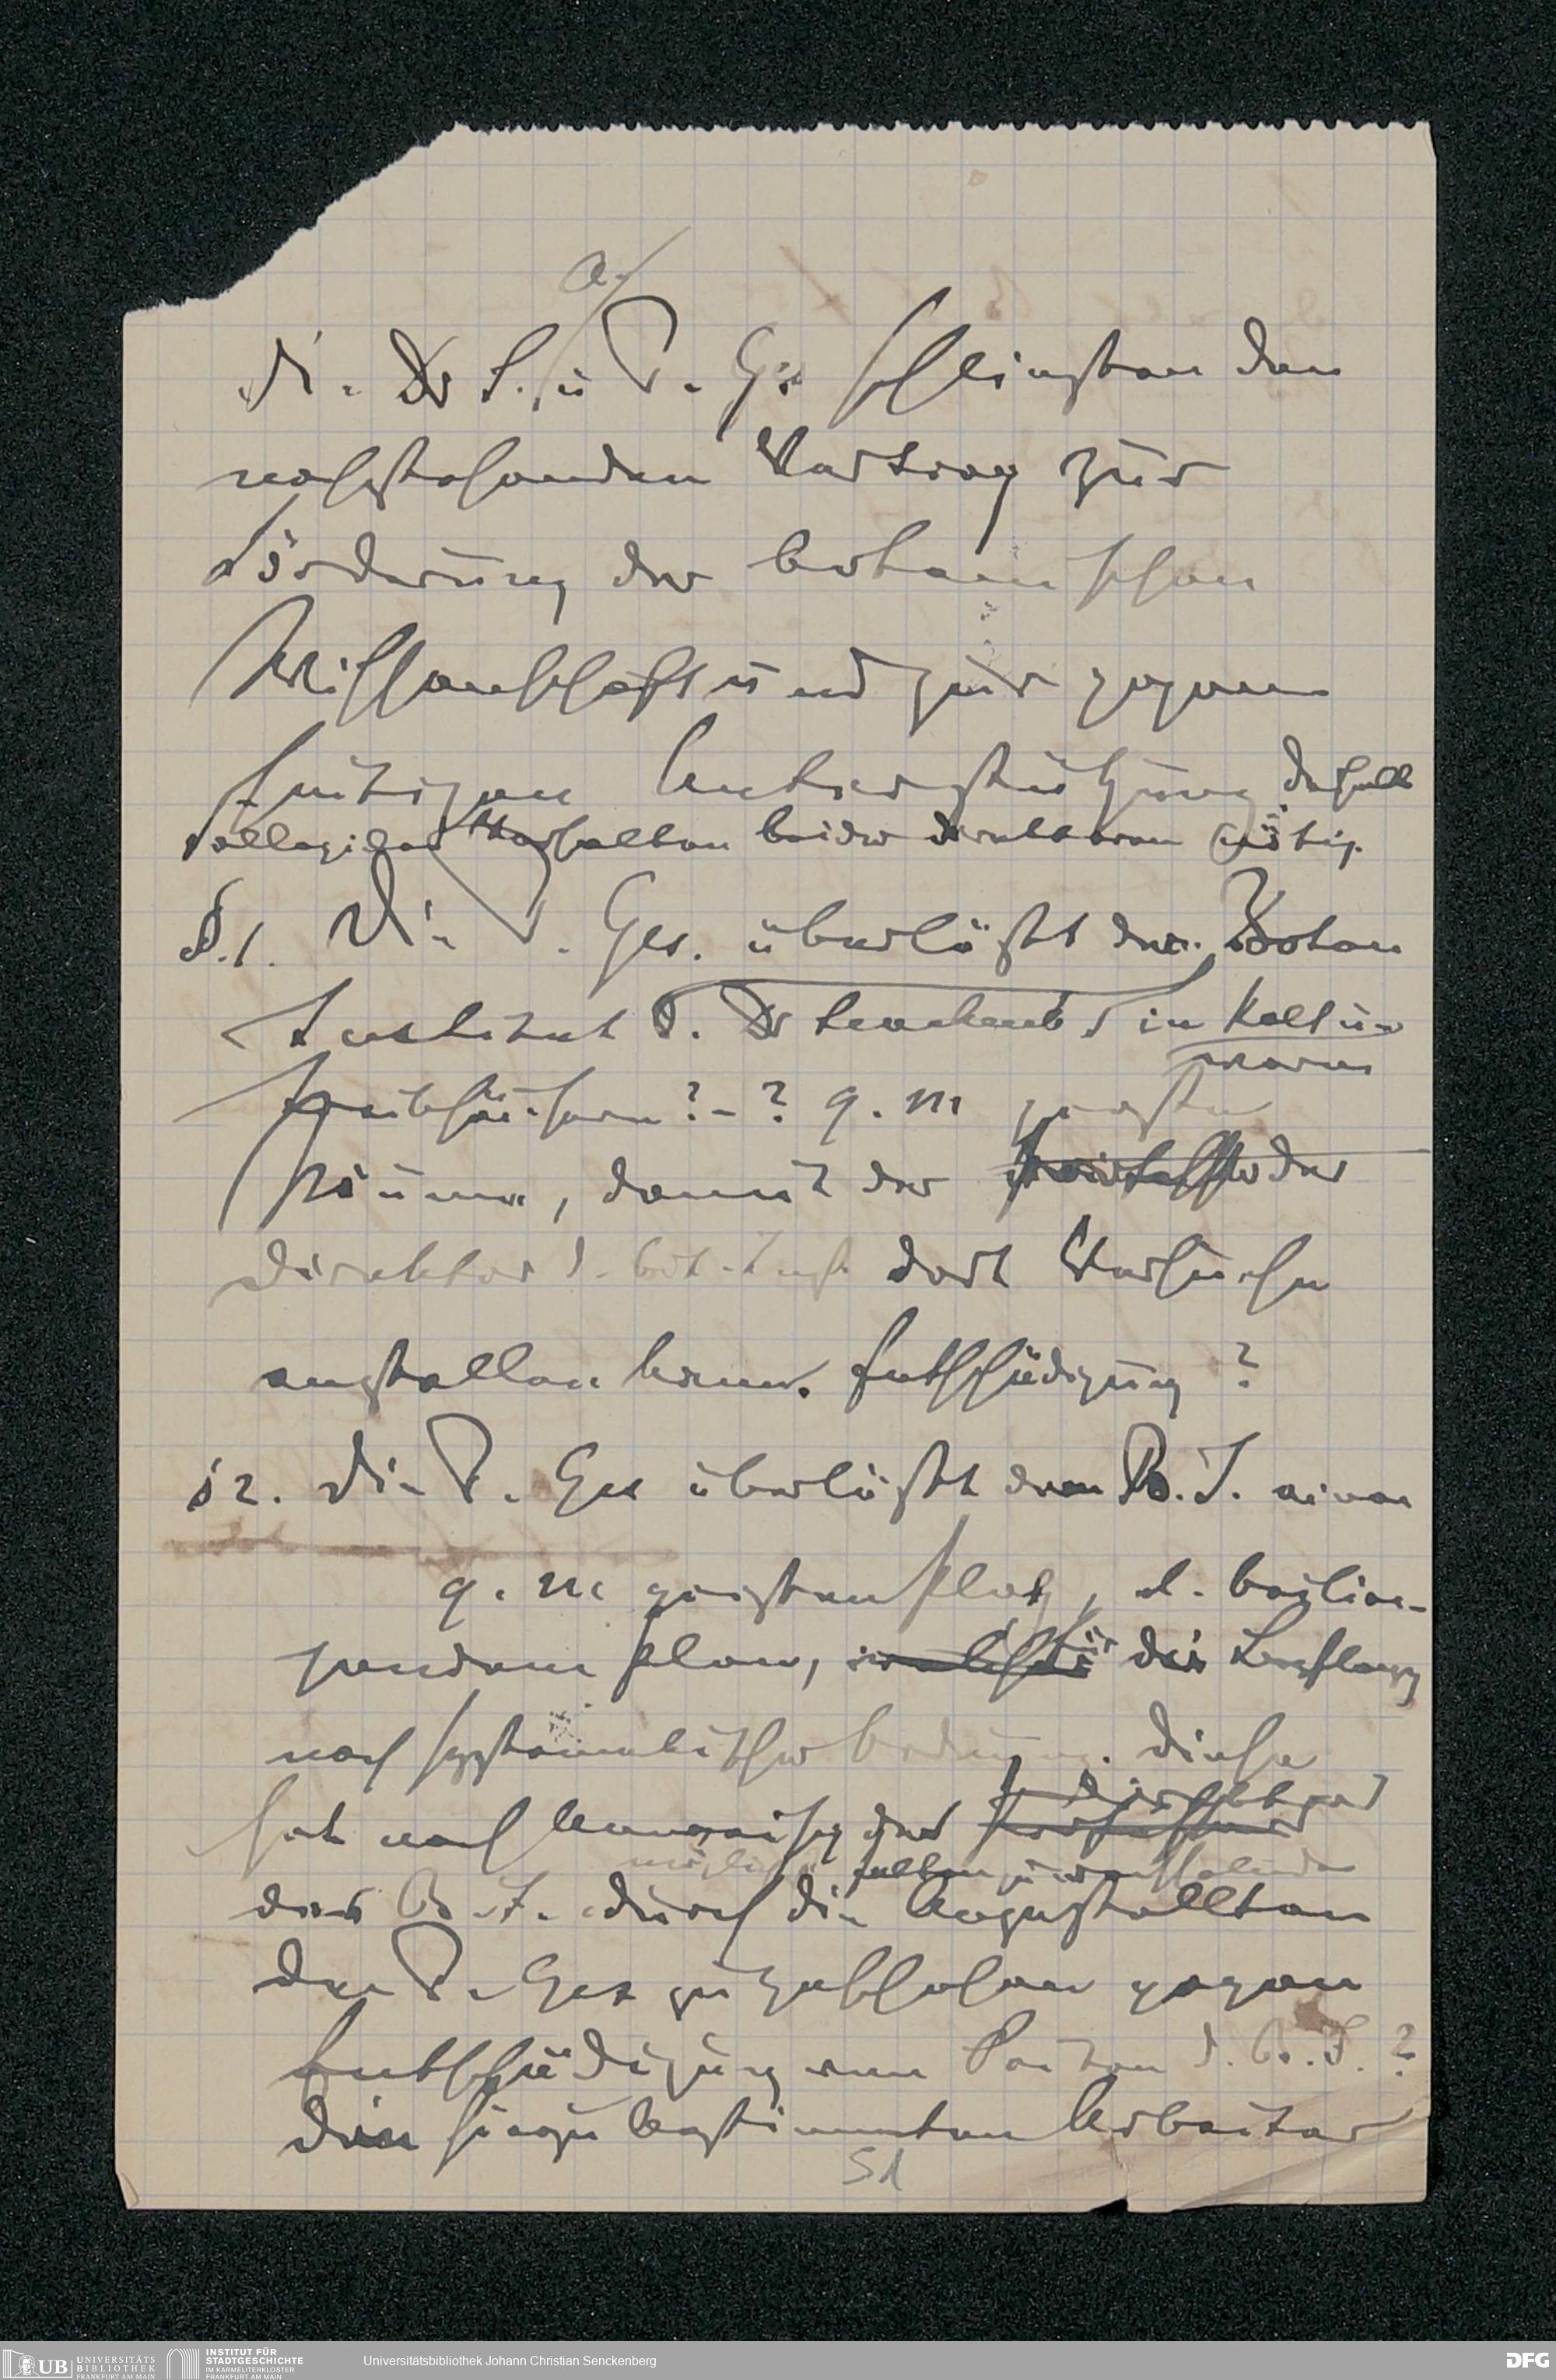 a.
Die Dr S. u P. Ges schliessten den
nachstehenden Vertrag zur
Förderung der botanischen
Wissenschaft und zur gegen
seitigen Unterstützung. Deshalb
collegiales Verhalten beider Direktoren nötig.
§.1. Die P. Ges. überlässt dem Botan
Institut d. Dr Senckenb. in Kultur
waren
Treibhäusern ? - ? q. m
Räume, damit der der
Direktor d. bot. Inst. dort Versuche
anstellen kann. Entschädigung ?
§2. Die P. Ges überlässt dem B. I. einen
q. m grossen Platz, l. beilie-
gendem Plan, für die
nach systematischer Ordnung. Diese
hat nach Anweisung des
des B. I. durch die Angestellten
der P. Ges zu geschehen gegen
Entschädigung von Seiten d. B. I. ?
Den hiezu bestimmten Arbeiter
51
UB UNIVERSITÄTS
BIBLIOTHEK
FRANKFURT AM MAIN
INSTITUT FÜR
STADTGESCHICHTE
IM KARMELITERKLOSTER
FRANKFURT AM MAIN
Universitätsbibliothek Johann Christian Senckenberg
DFG